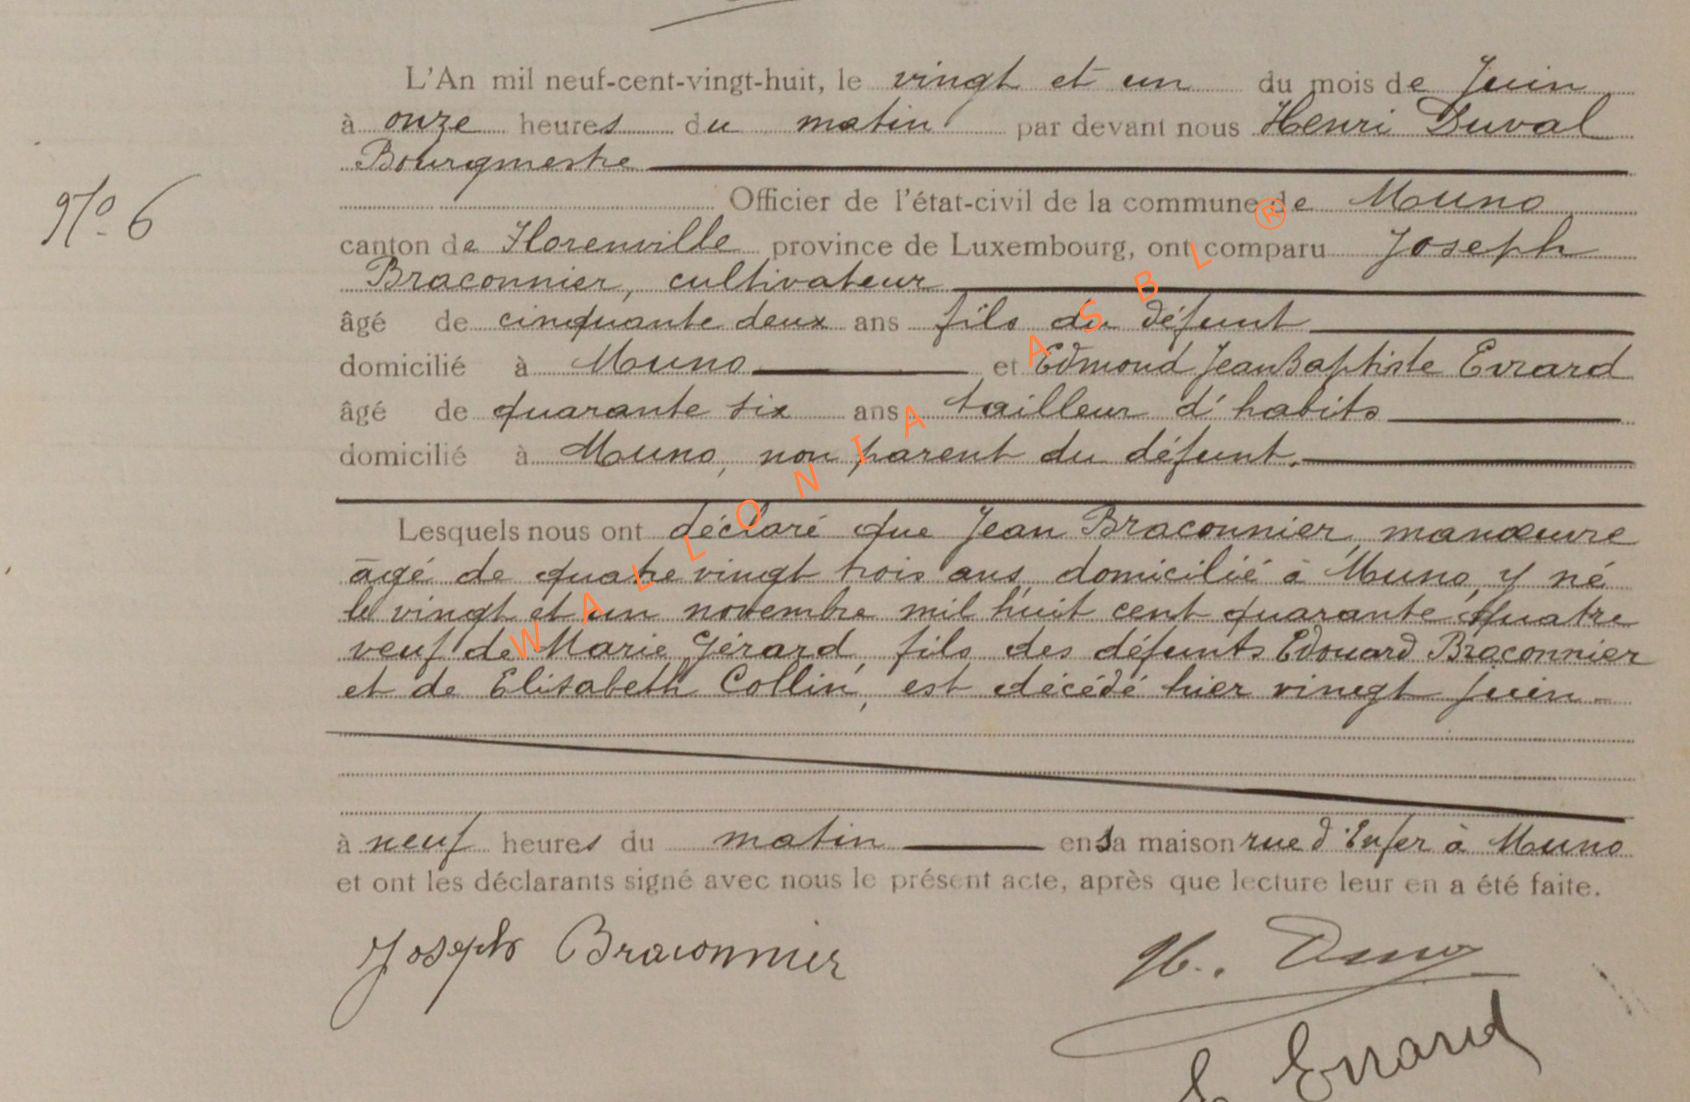 L'An mil neuf-cent-vingt-huit, le vingt et un du mois de Juin
à onze heures du matin par devant nous Henri Duval
Bourgmestre
Officier de l'état-civil de la commune de Muno
Nº 6
canton de Florenville province de Luxembourg, ont comparu Joseph
Braconnier, cultivateur
âgé de cinquante deux ans fils du défunt
domicilié à Muno et Edmond Jean Baptiste Evrard
âgé de quarante six ans tailleur d'habits
domicilié à Muno, non parent du défunt.
Lesquels nous ont déclaré que Jean Braconnier, manœuvre
âgé de quatre vingt trois ans, domicilié à Muno, y né
le vingt et un novembre mil huit cent quarante quatre
veuf de Marie Gérard, fils des défunts Edouard Braconnier
et de Elisabeth Collin, est décédé hier vingt juin
à neuf heures du matin en sa maison rue d'Enfer à Muno
et ont les déclarants signé avec nous le présent acte, après que lecture leur en a été faite.
Joseph Braconnier
H. Duval
E Evrard
WALLONIA ASBL ®